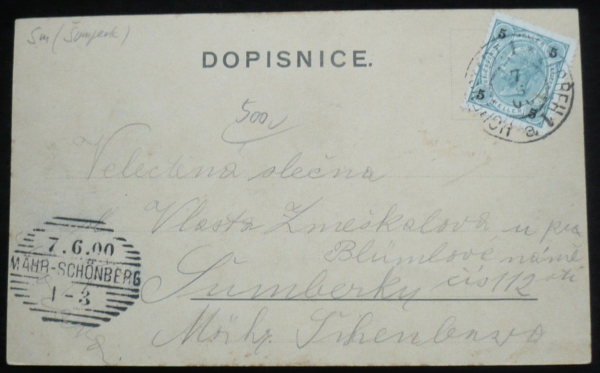 Sm (Šumperk)
DOPISNICE.
5 5
5 5
500
Velectěna slečna
Vlasta Zmeškalova u pra
Blümlové námě
Šumberky čís 112 stí
Mähr. Schenberg
7.6.00
MÄHR-SCHÖNBERG
1-3